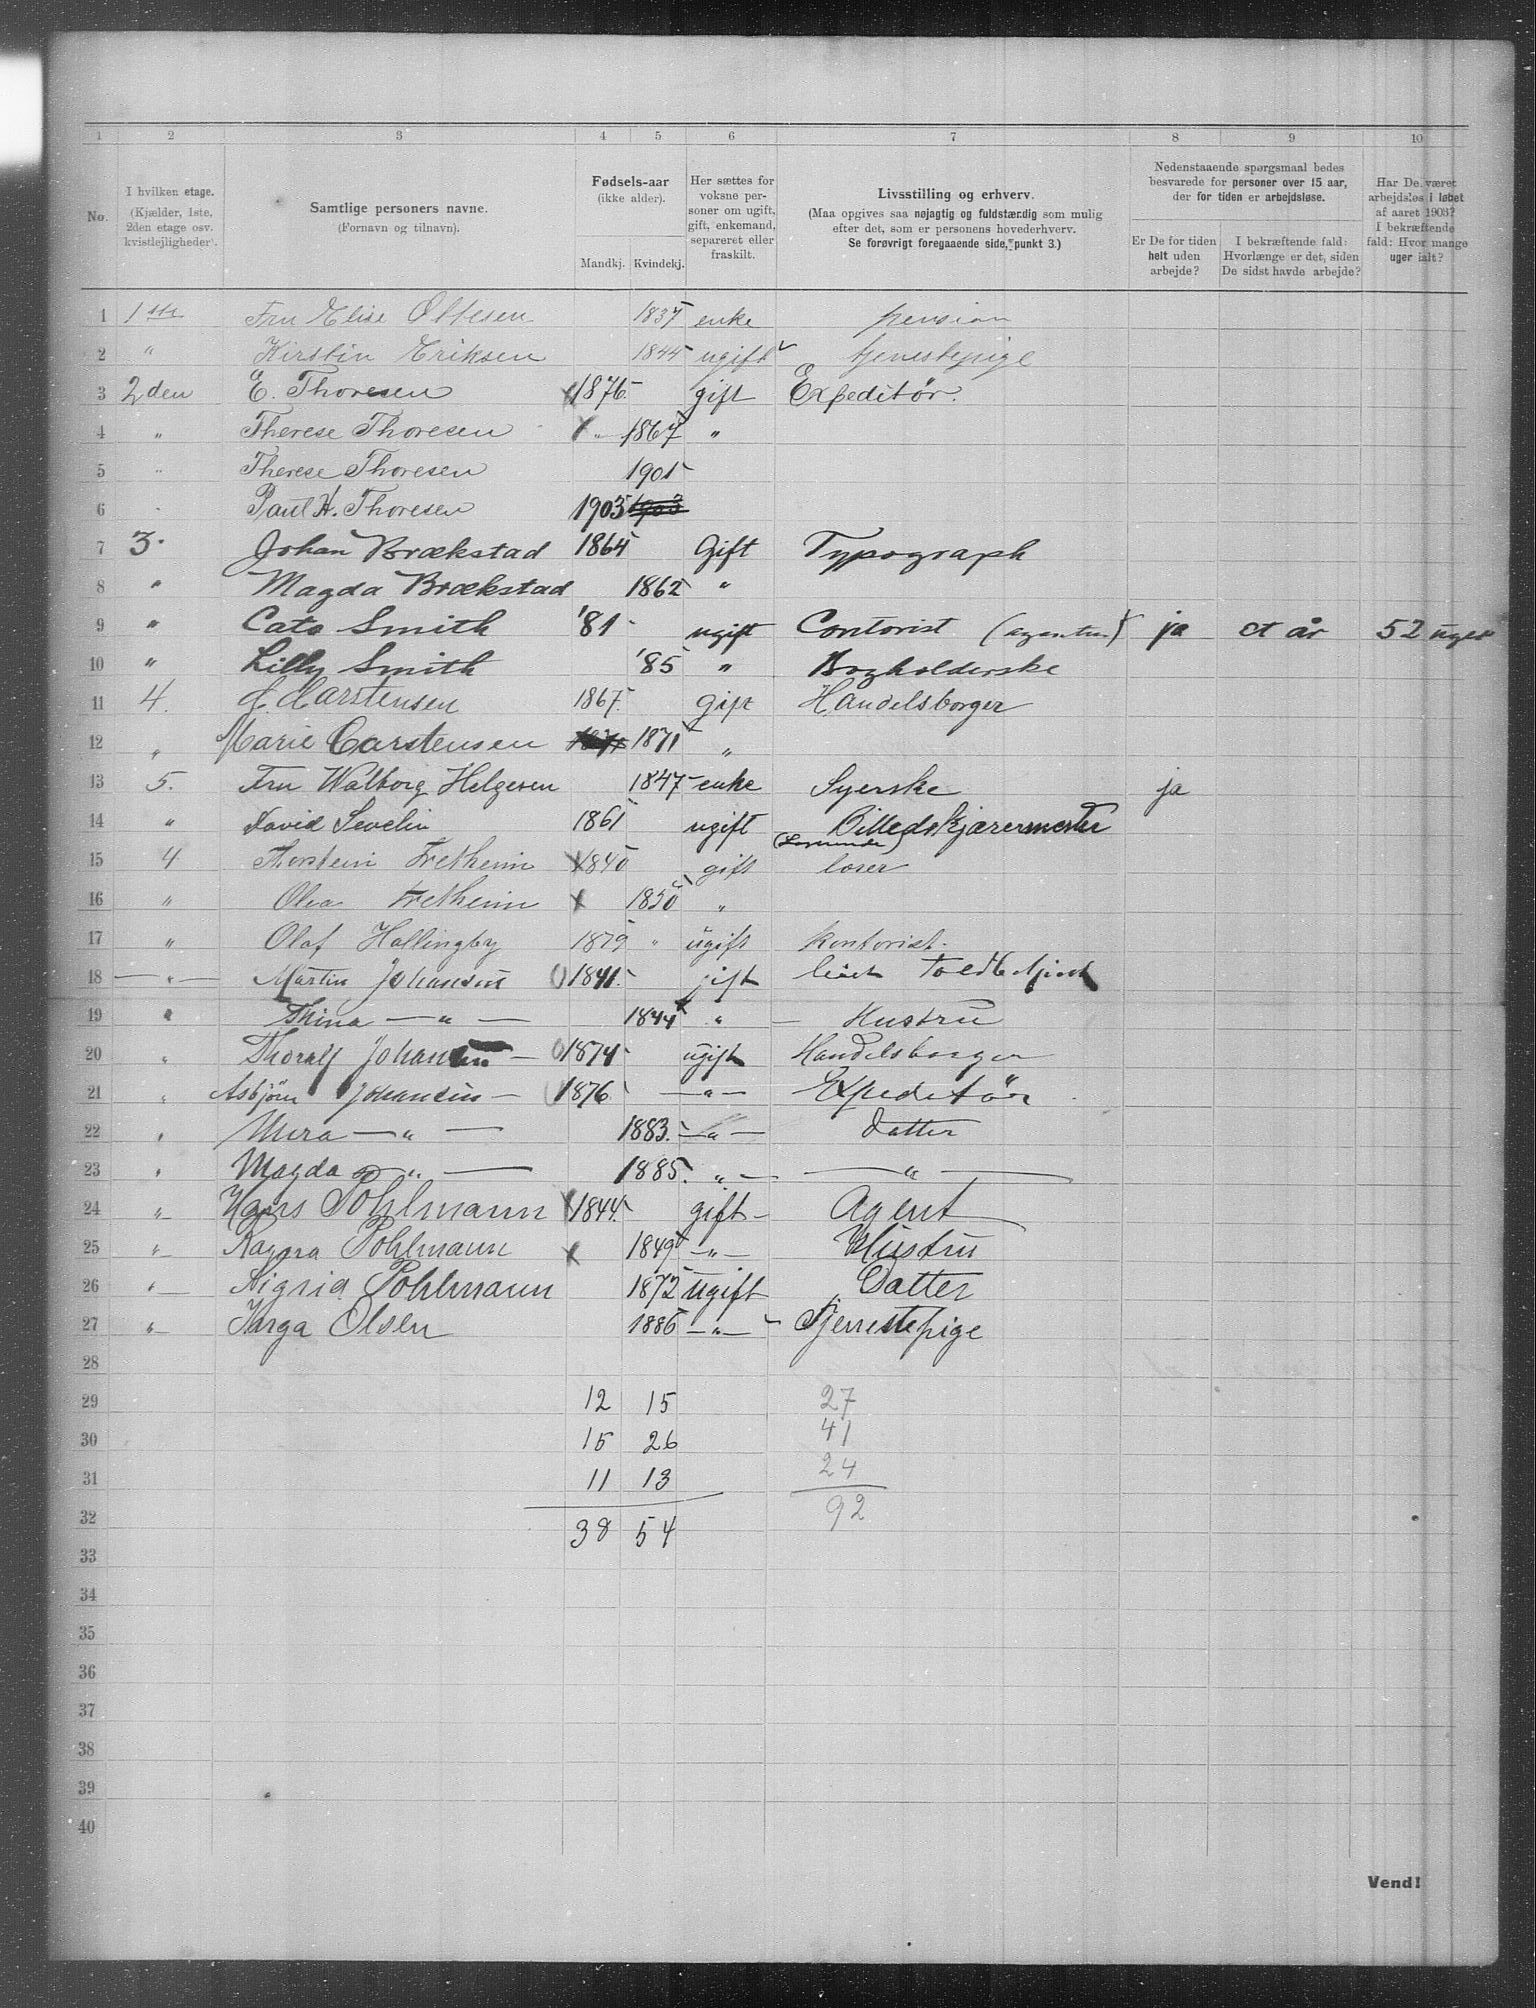 1 2 3 4 5 6 7 8 9 10
No.
I hvilken etage.
(Kjælder, 1ste,
2den etage osv.
kvistlejligheder).
Samtlige personers navne.
(Fornavn og tilnavn).
Fødsels-aar
(ikke alder).
Mandkj. Kvindekj.
Her sættes for
voksne per-
soner om ugift,
gift, enkemand,
separeret eller
fraskilt.
Livsstilling og erhverv.
(Maa opgives saa nøjagtig og fuldstændig som mulig
efter det, som er personens hovederhverv.
Se forøvrigt foregaaende side, punkt 3.)
Nedenstaaende spørgsmaal bedes
besvarede for personer over 15 aar,
der for tiden er arbejdsløse.
Er De for tiden
helt uden
arbejde?
I bekræftende fald:
Hvorlænge er det, siden
De sidst havde arbejde?
Har De været
arbejdsløs i løbet
af aaret 1903?
I bekræftende
fald: Hvor mange
uger ialt?
1 1ste Fru Elise Ottesen 1837 enke pension
2 " Kirstin Eriksen 1844 ugift tjenestepige
3 2den E. Thoresen 1876 gift Expeditør.
4 " Therese Thoresen " 1867 "
5 " Therese Thoresen 1901
6 " Paul H. Thoresen 1903 1903
7 3. Johan Brækstad 1864 Gift Typograph
8 " Magda Brækstad 1862 "
9 " Cato Smith '81 ugift Contorist (agentur) ja et år 52 uger
10 " Lilly Smith '85 " Bogholderske
11 4. Carstensen 1867. Gift Handelsborger
12 " Marie Carstensen 1871 1871 "
13 5. Fru Walborg Helgesen 1847 enke Syerske ja
14 " David Sevelin 1861 ugift Billedskjærermester
15 4 Thorstein Fretheim 1840 gift
16 " Olea Fretheim 1850 "
17 " Olaf Hallingby 1879 " ugift kontorist.
18 — " — Martin Johansen 1841. gift
19 " Thina — " — 1844 " — Hustru
20 " Thoralf Johansen — 1874 ugift Handelsborger
21 " Asbjörn Johansen — 1876 — " — Expeditör
22 " — " — 1883. — " — Datter
23 " Magda — " — 1885. " — — " —
24 " Hans Pohlmann 1844. gift — Agent
25 " Ragna Pohlmann 1849 — " — Hustru
26 " Sigrid Pohlmann 1872 ugift Datter
27 " Inga Olsen 1886 — " — Tjenestepige
28
29 12 15 27
30 15 26 41
31 11 13 24
32 38 54 92
33
34
35
36
37
38
39
40
Vend!